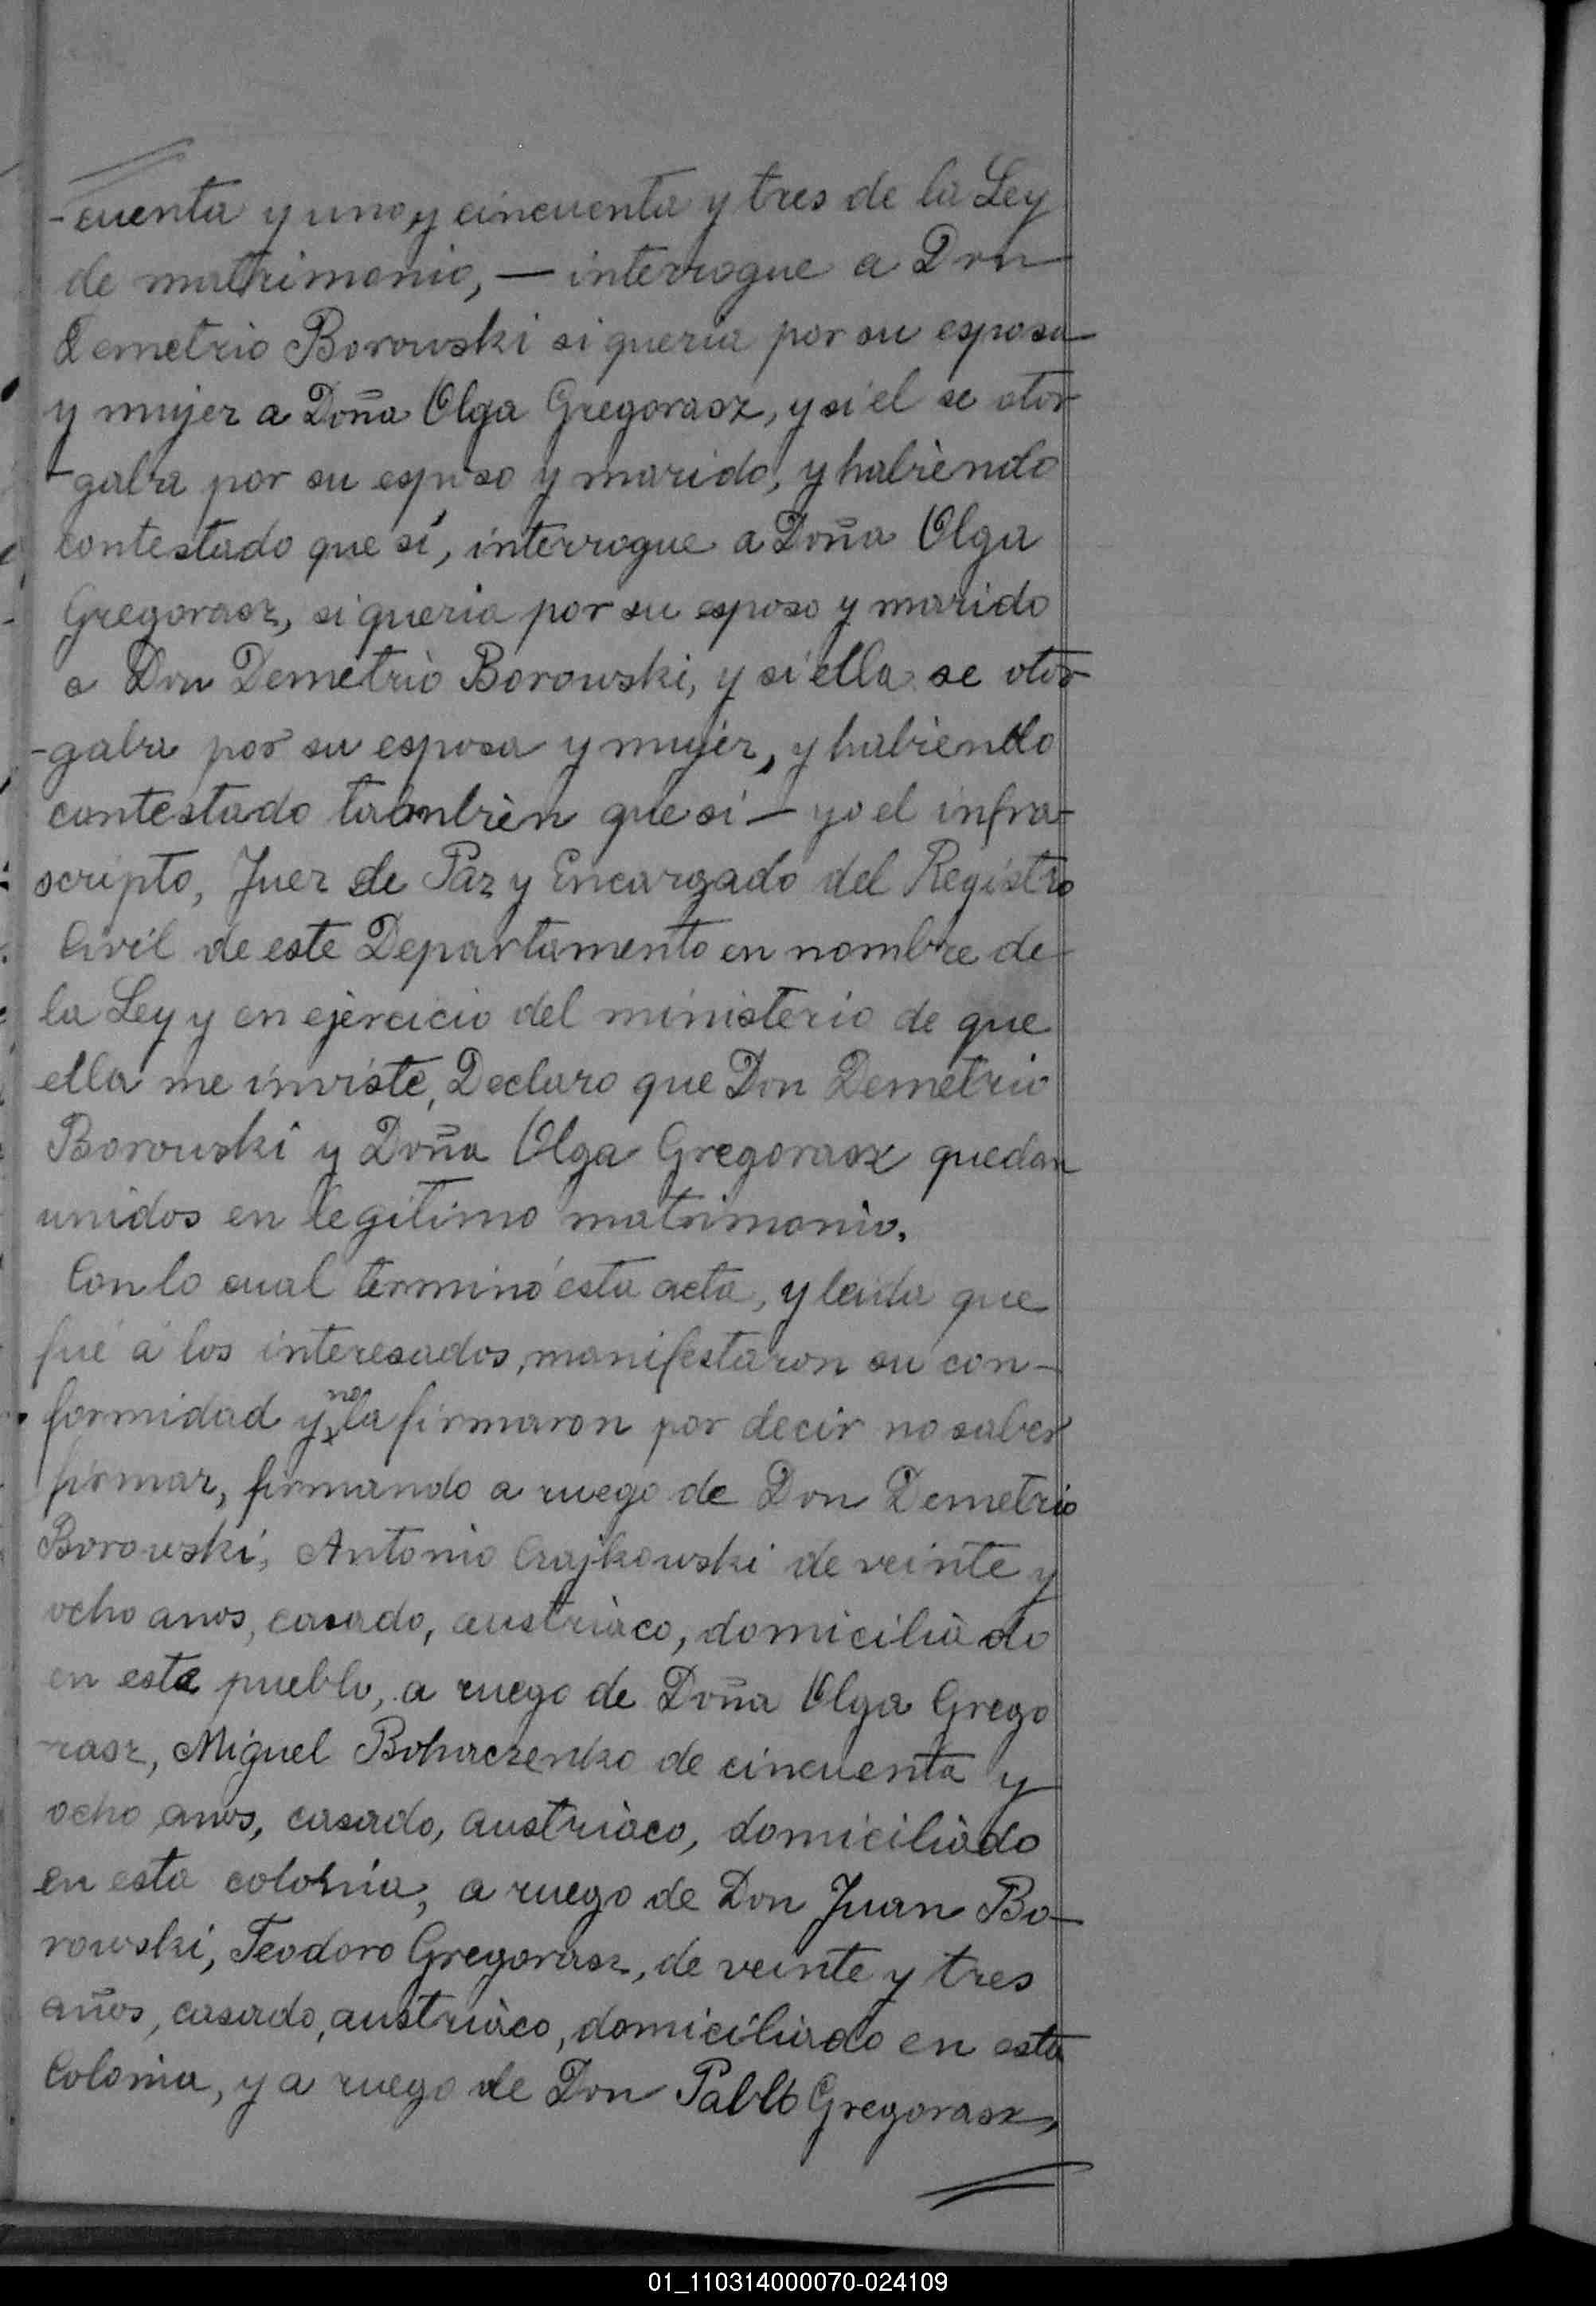 -cuenta y uno, y cincuenta y tres de la Ley
de matrimonio, — interrogue a Don
Demetrio Borowski si queria por su esposa
y mujer a Doña Olga Gregorasz, y si el se otor
-gaba por su esposo y marido, y habiendo
contestado que sí, interrogue a Doña Olga
Gregorasz, si queria por su esposo y marido
a Don Demetrio Borowski, y si ella se otor
-gaba por su esposa y mujer, y habiendo
contestado tambien que si — yo el infra-
scripto, Juez de Paz y Encargado del Registro
Civil de este Departamento en nombre de
la Ley y en ejercicio del ministerio de que
ella me inviste, Declaro que Don Demetrio
Borowski y Doña Olga Gregorasz quedan
unidos en legitimo matrimonio.
Con lo cual terminó esta acta, y leida que
fué á los interesados, manifestaron su con-
formidad y no la firmaron por decir no saber
firmar, firmando a ruego de Don Demetrio
Borowski, Antonio Czajkowski de veinte y
ocho anos, casado, austriaco, domiciliado
en este pueblo, a ruego de Doña Olga Grego
-rasz, Miguel Bohaczenko de cincuenta y
ocho anos, casado, austriaco, domiciliado
en esta colonia, a ruego de Don Juan Bo-
rowski, Teodoro Gregorasz, de veinte y tres
años, casado, austriaco, domiciliado en esta
Colonia, y a ruego de Don Pablo Gregorasz,
01_110314000070-024109